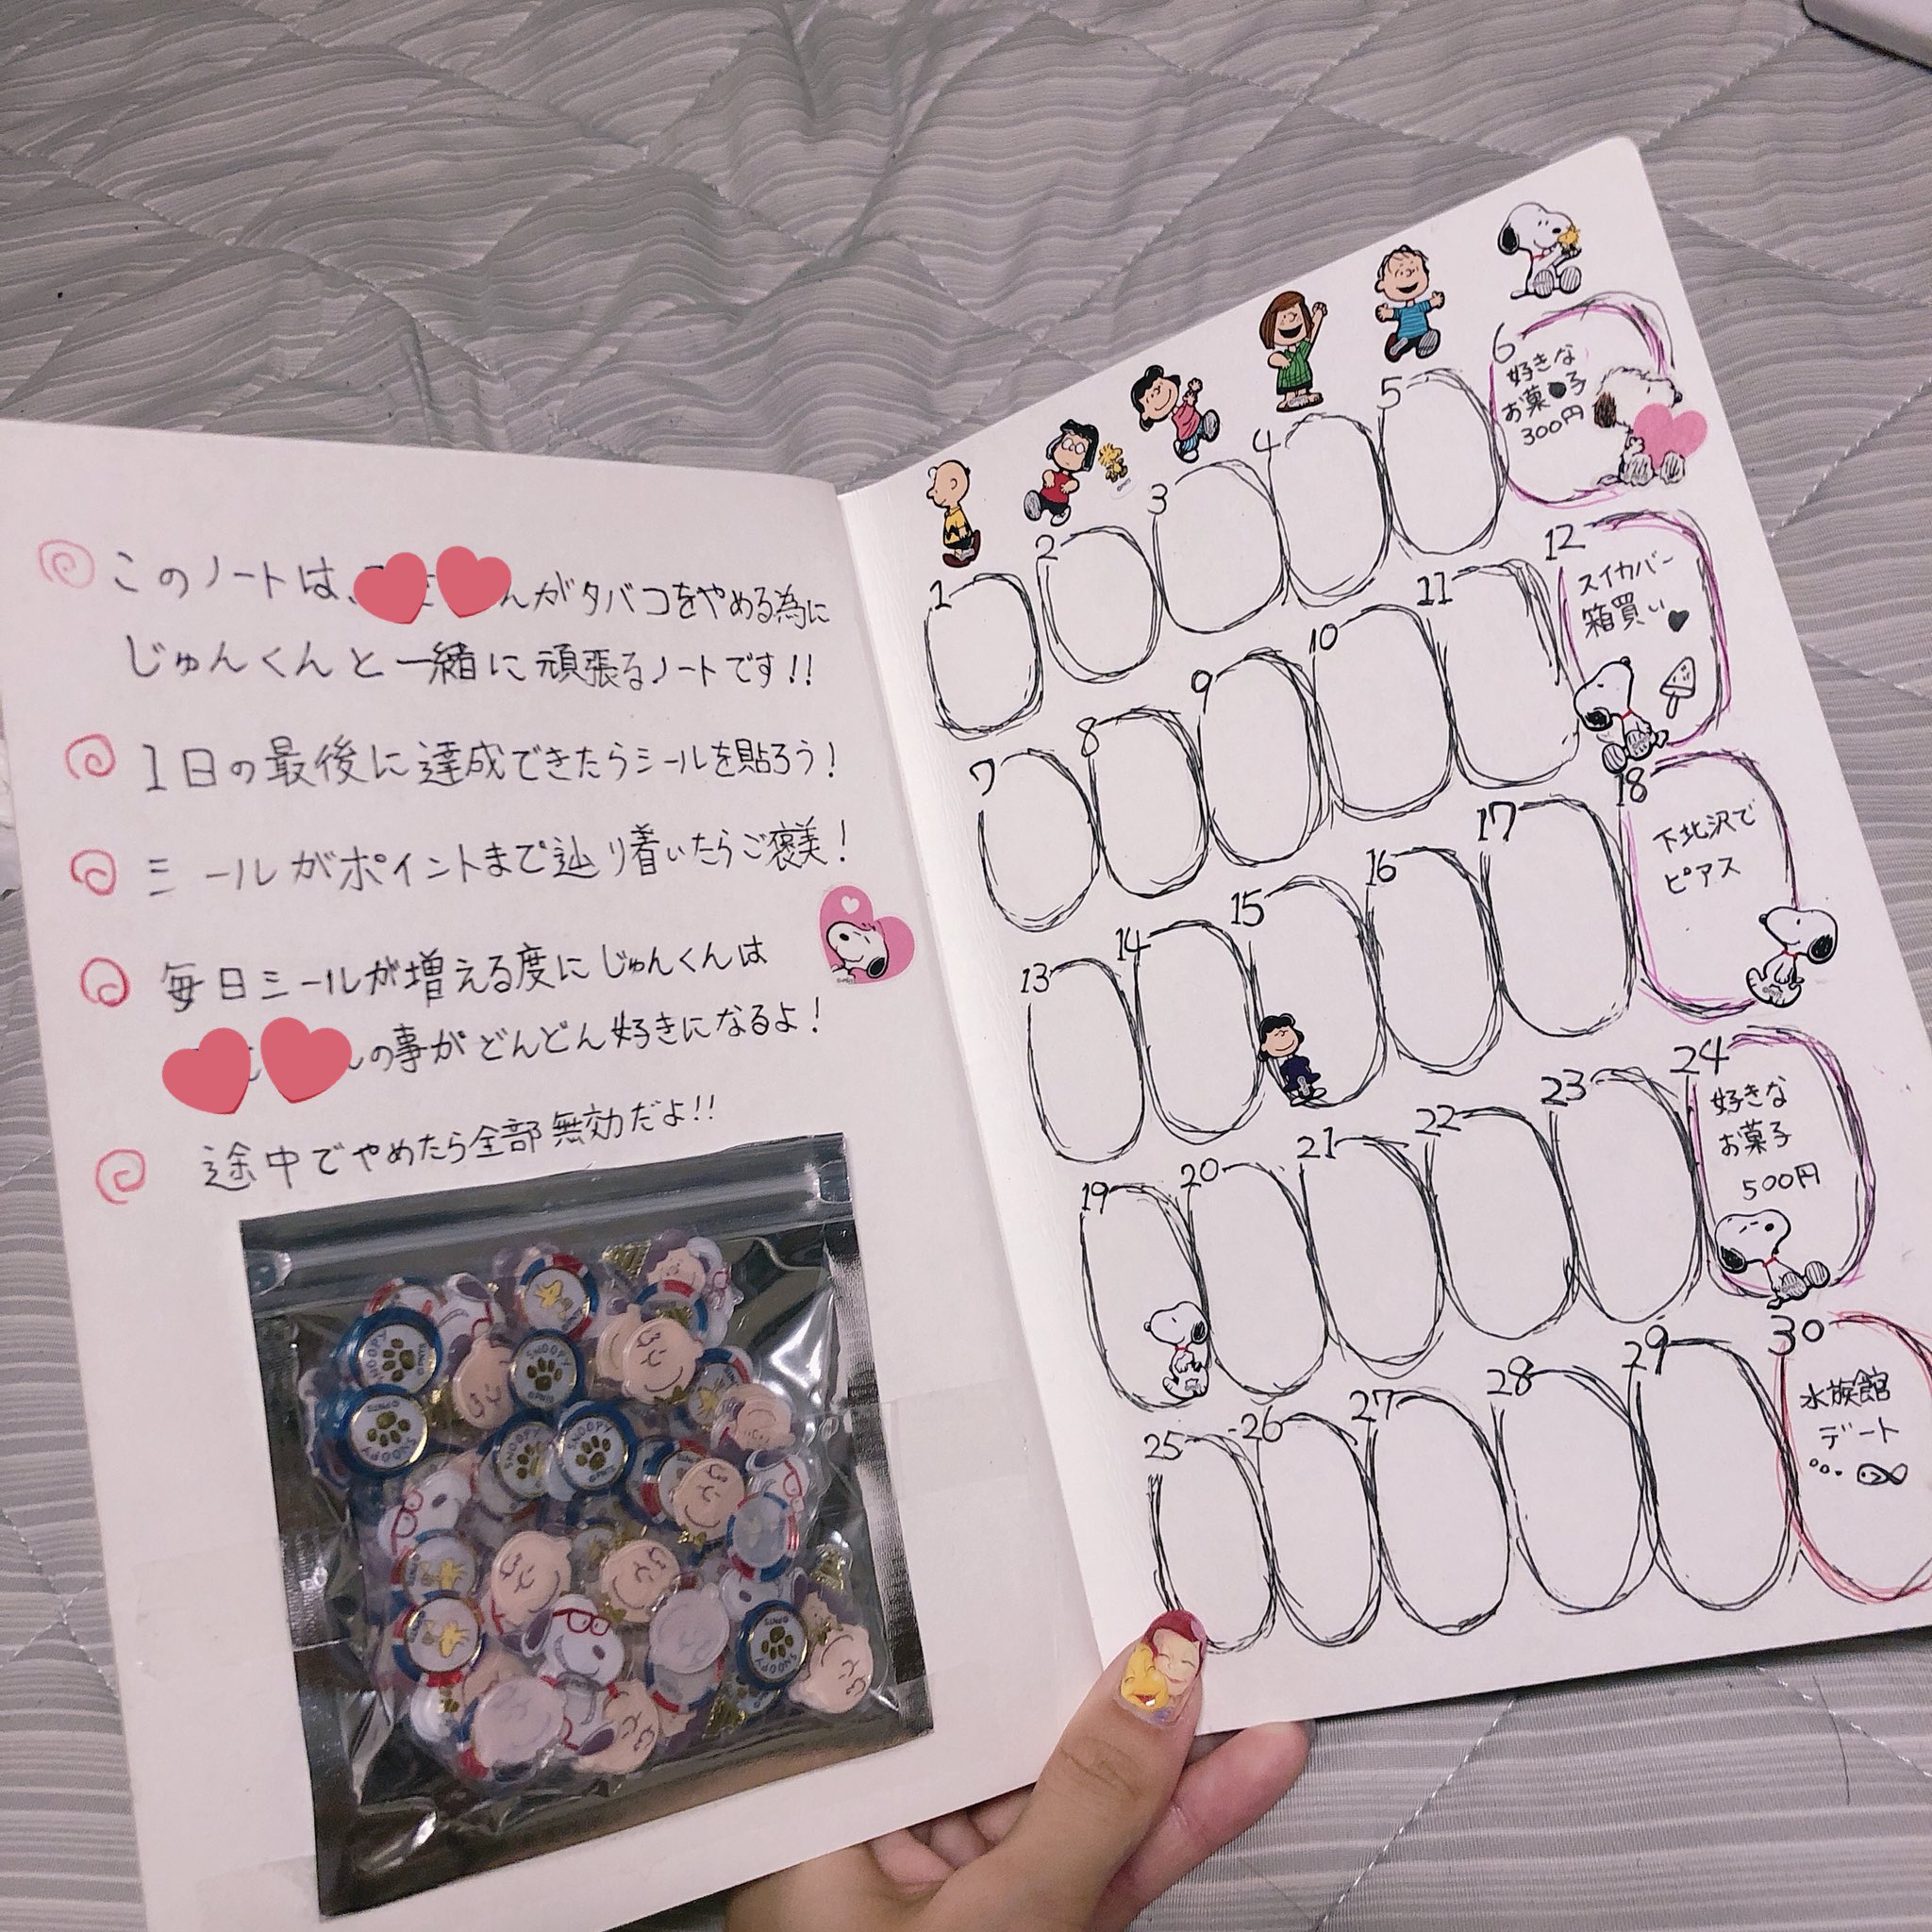 このノートは、んがタバコをやめる為に
じゅんくんと一緒に頑張るノートです!!
1日の最後に達成できたらシールを貼ろう!
シールがポイントまで辿り着いたらご褒美!
毎日シールが増える度にじゅんくんは
の事がどんどん好きになるよ!
途中でやめたら全部無効だよ!!
1
2
3
4
5
6
好きな
お菓子
300円
7
8
9
10
11
12
スイカバー
箱買い
13
14
15
16
17
18
下北沢で
ピアス
19
20
21
22
23
24
好きな
お菓子
500円
25
26
27
28
29
30
水族館
デート
SNOOPY
SNOOPY
SNOOPY
SNOOPY
SNOOPY
SNOOPY